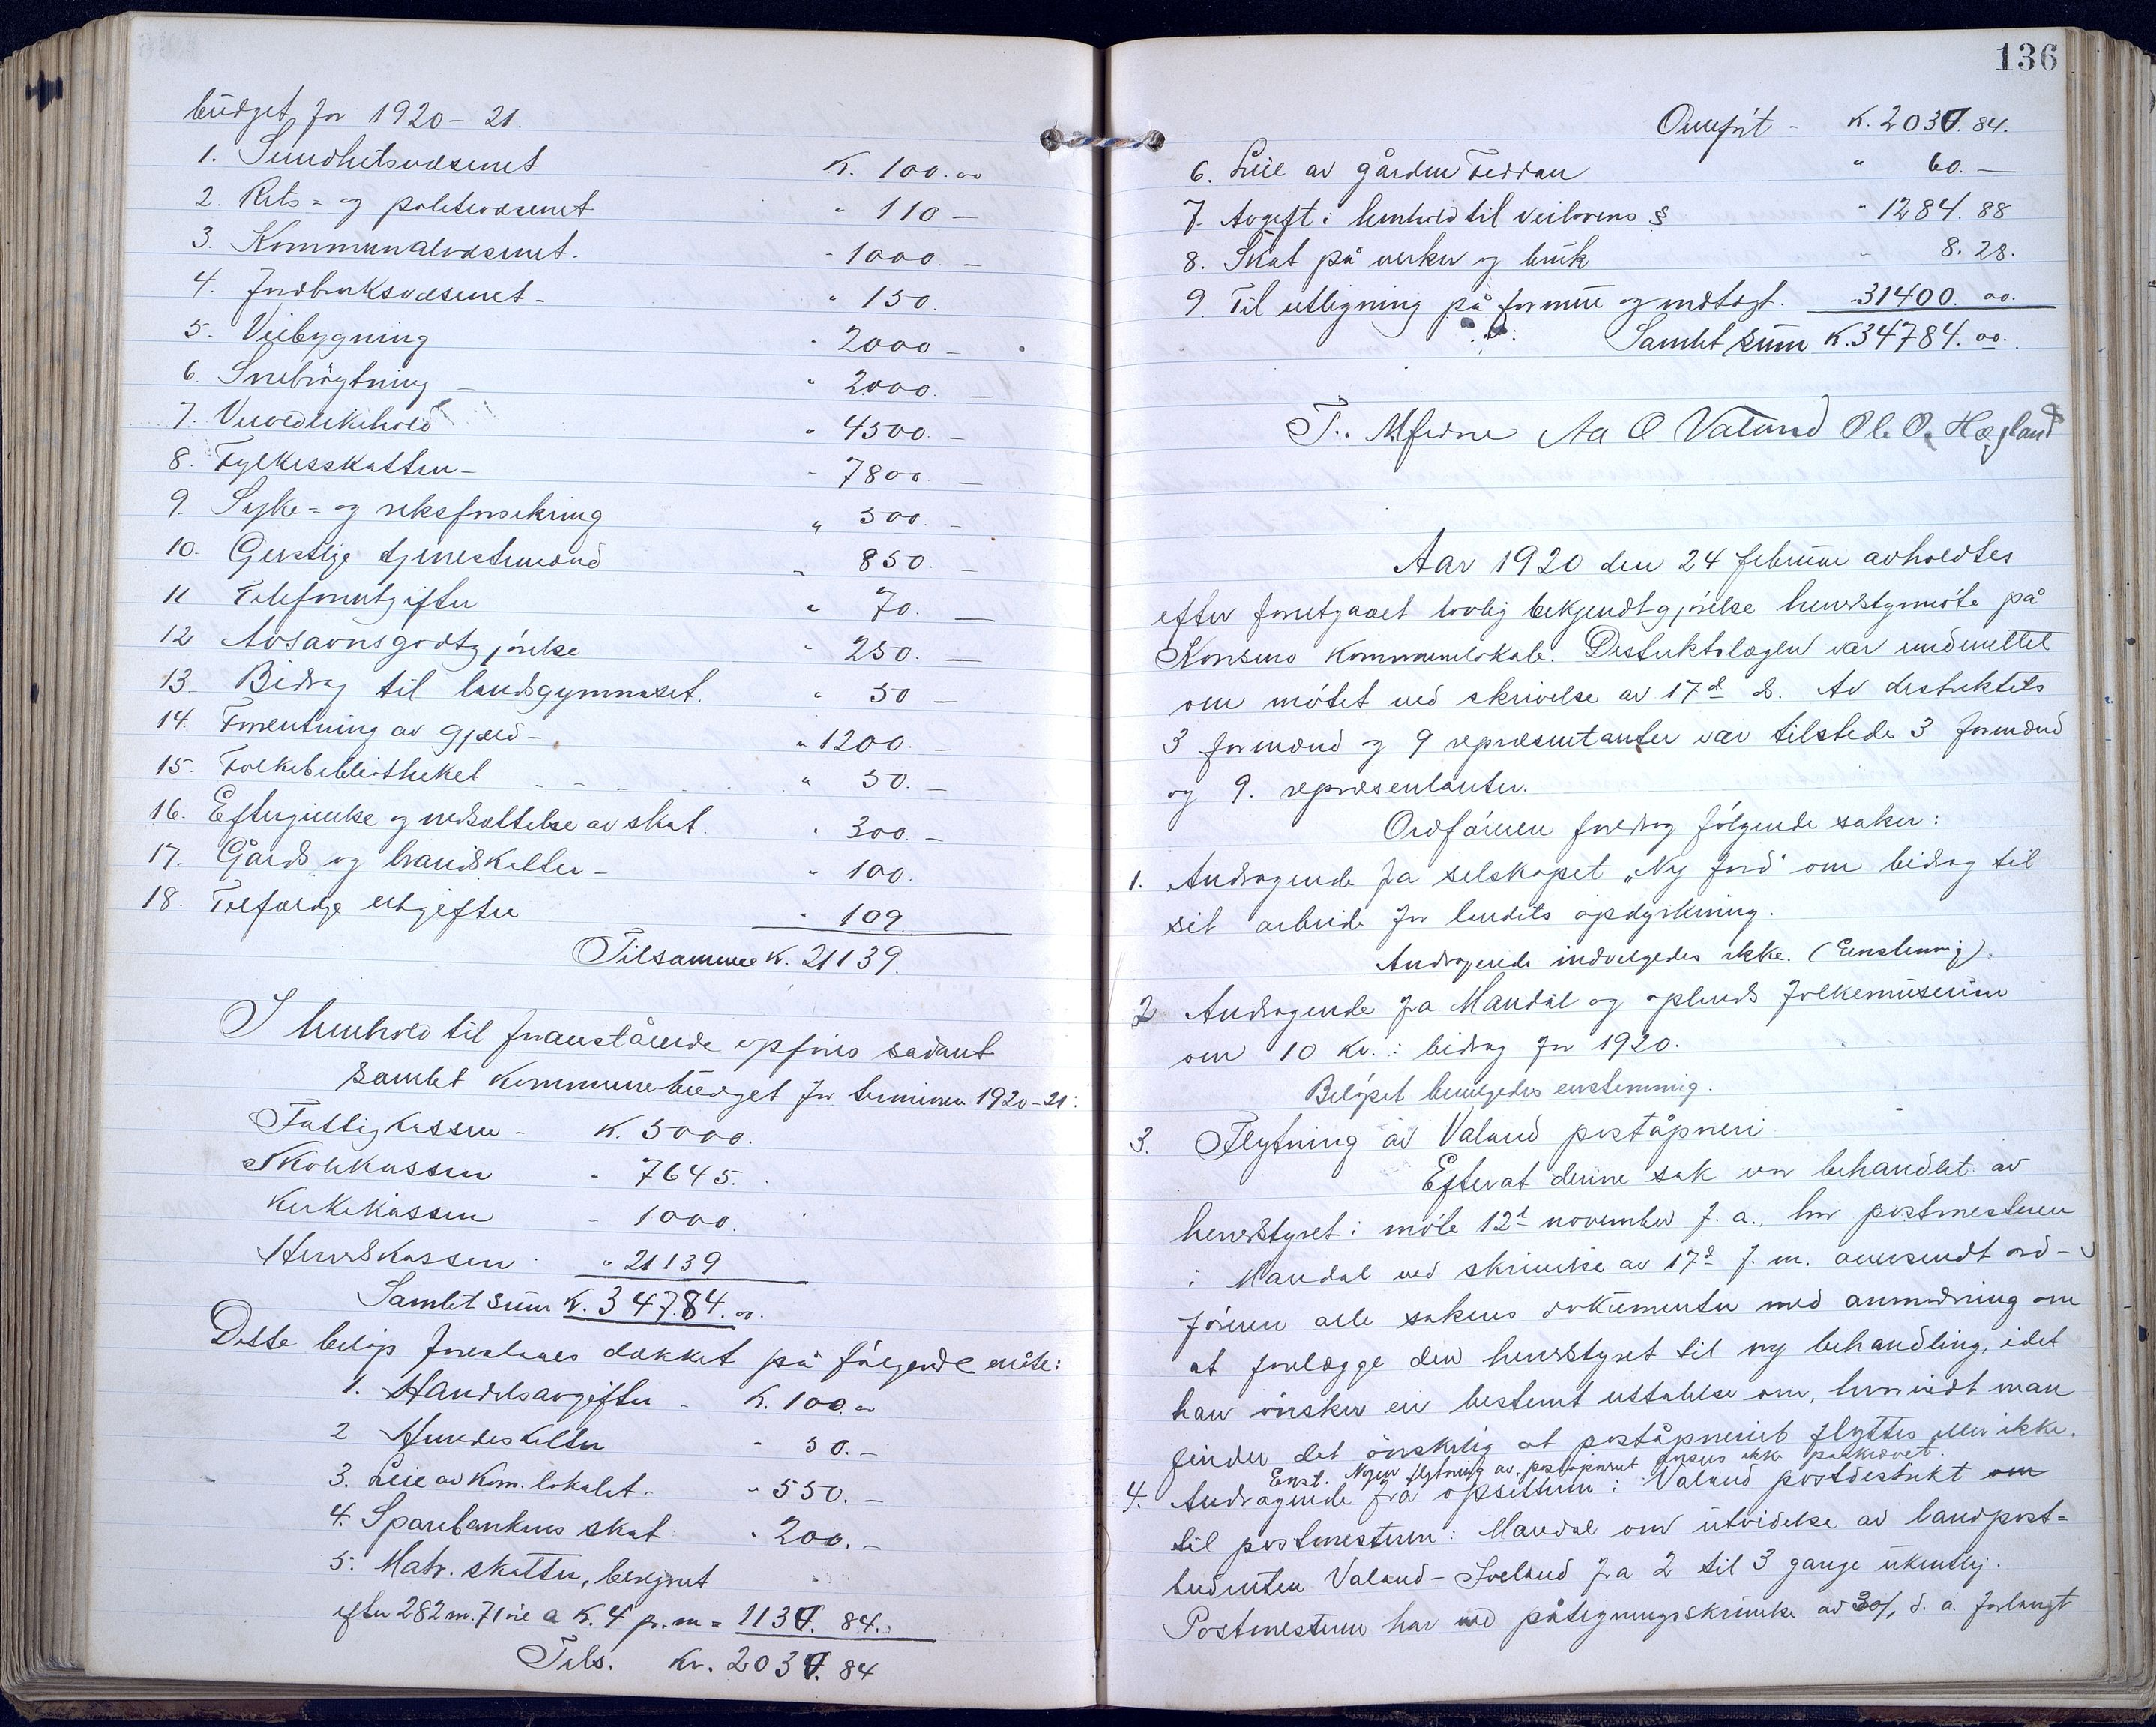 budget for 1920 - 21.
1. Sundhetsvæsenet K. 100.00
2. Rets- og politivæsenet " 110 -
3. Kommunalvæsenet. - 1000. -
4. Jordbruksvæsenet - " 150.
5. Veibygning " 2000 -
6. Snebrøgtning - " 2000. -
7. Veivedlikehold " 4500. -
8. Fylkesskatten - " 7800. -
9. Syke- og riksforsikring " 500. -
10. Geistlige tjenestemænd " 850. -
11 Telefonutgifter " 70. -
12 Avsavnsgodtgjørelse " 250. -
13. Bidrag til landsgymnaset. " 50 -
14. Forrentning av gjæld - " 1200. -
15. Folkebibliotheket " 50. -
16. Eftergivelse og nedsættelse av skat. " 300. -
17. Gårds og brandskatter - " 100.
18. Tilfældige utgifter " 109.
Tilsammen K. 21139.
I henhold til foranstående opføres sådant
samlet kommunebudget for terminen 1920-21:
Fattigkassen - K. 5000.
Skolekassen " 7645.
Kirkekassen - 1000.
Herredskassen " 21139
Samlet sum K. 34784.00.
Dette beløp foreslaaes dækket på følgende måte:
1. Handelsavgifter - K. 100.00
2 Hundeskatter " 50. -
3. Leie av Kom. lokalet - " 550. -
4. Sparebankens skat " 200. -
5. Matr. skatter, beregnet
efter 282 m. 71 øre a K. 4 pr. m = 1130. 84.
Tils. Kr. 2030. 84
136
Overført - K. 2030. 84.
6. Leie av gården Feddan " 60. -
7. Avgift i henhold til veilovens § " 1284. 88
8. Skat på verker og bruk " 8. 28.
9. Til utligning på formue og indtægt. " 31400. 00.
Samlet sum K. 34784. 00.
T. Mferne Aa O Valand Ole O. Hægland
Aar 1920 den 24 februar avholdtes
efter foretgaaet lovlig bekjendtgjørelse herredstyrmøte på
Konsmo kommunelokale. Distriktslægen var underrettet
om møtet ved skrivelse av 17d ds. Av distriktets
3 formænd og 9 repræsentanter var tilstede 3 formænd
og 9. repræsentanter.
Ordføreren foredrog følgende saker:
1. Andragende fra selskapet "Ny Jord" om bidrag til
sit arbeide for landets opdyrkning.
Andragende indvilgedes ikke. (Enstemmig).
2 Andragende fra Mandal og oplands folkemuseum
om 10 kr. i bidrag for 1920.
Beløpet bevilgedes enstemmig.
3. Flytning av Valand poståpneri
Efterat denne sak var behandlet av
herredstyret i møte 12t november f. a., har postmesteren
i Mandal ved skrivelse av 17d f. m. oversendt ord-
føreren alle sakens dokumenter med anmodning om
at forelægge den herredstyret til ny behandling, idet
han ønsker en bestemt uttalelse om, hvorvidt man
finder det ønskelig at poståpneriet flyttes eller ikke.
Enst. Nogen flytning av poståpneriet ansees ikke påkrævet.
4. Andragende fra opsitterne i Valand postdistrikt om
til postmesteren i Mandal om utvidelse av landpost-
budruten Valand - Iveland fra 2 til 3 gange ukentlig.
Postmesteren har ved påtegningsskrivelse av 30/1 d. a. forlangt